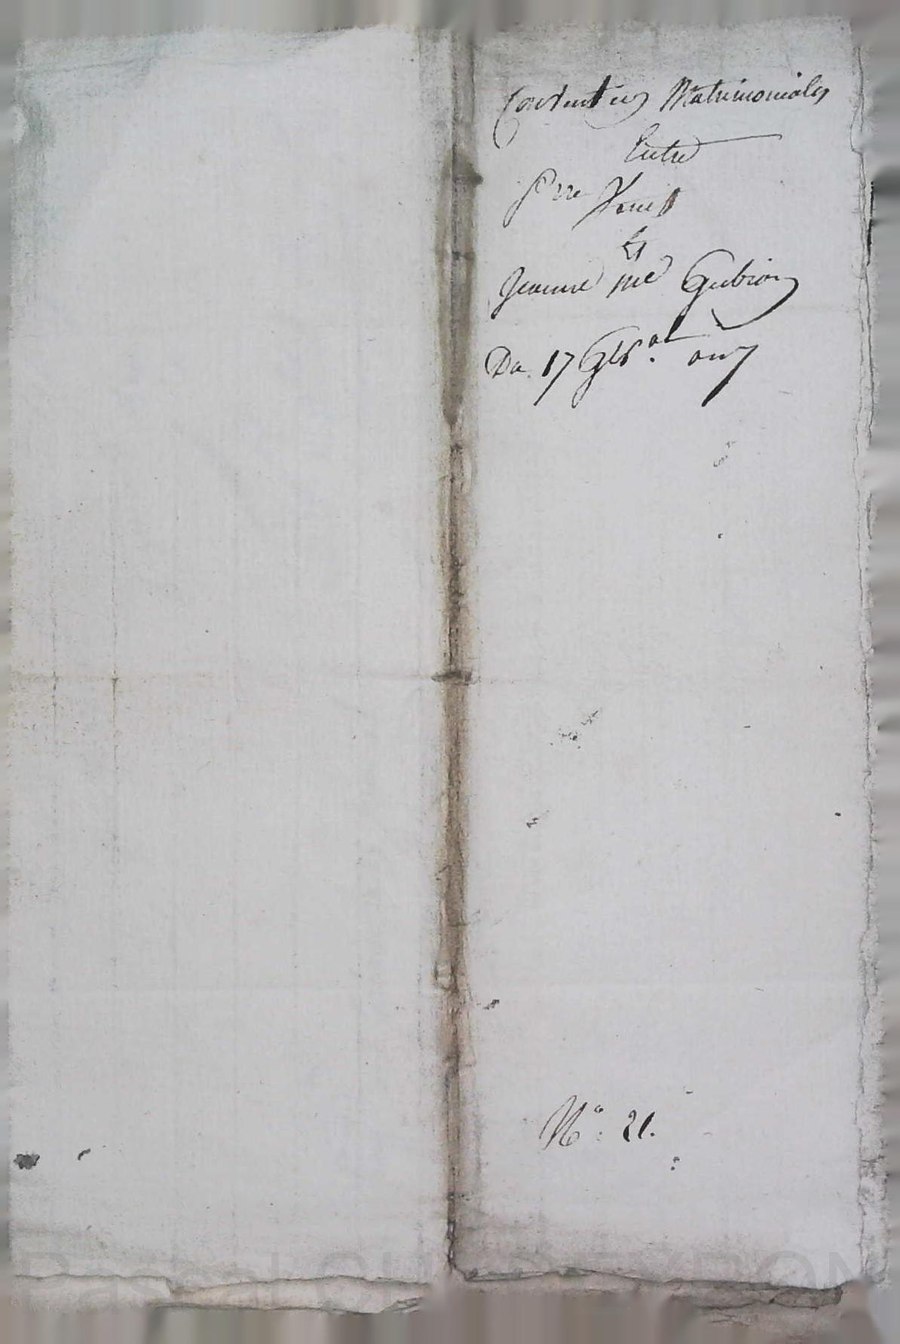 Conventions Matrimoniales
Entre
Pre
Et
Jeanne me Gubion
Du 17 an 7
No. 21.